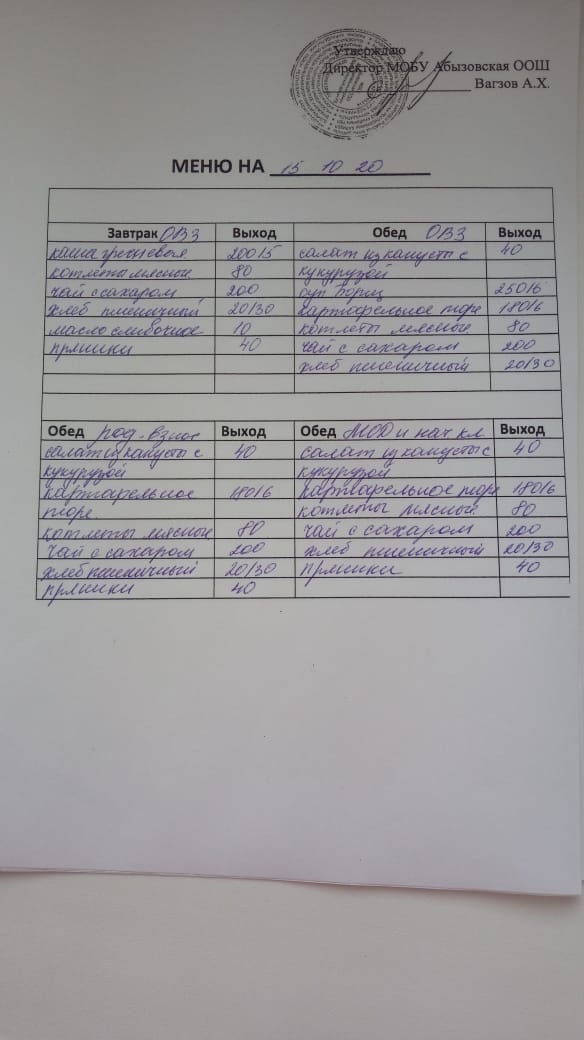 Утверждаю
Директор МОБУ Абызовская ООШ
Вагзов А.Х.
МЕНЮ НА 15 10 20
Завтрак ОВЗ Выход Обед ОВЗ Выход
каша гречневая 200/5 салат из капусты с 40
котлеты мясные 80 кукурузой
чай с сахаром 200 суп борщ 250/6
хлеб пшеничный 20/30 картофельное пюре 180/6
масло сливочное 10 котлеты мясные 80
пряники 40 чай с сахаром 200
хлеб пшеничный 20/30
Обед род. взнос Выход Обед МОД и нач кл. Выход
салат из капусты с 40 салат из капусты с 40
кукурузой кукурузой
картофельное 180/6 картофельное пюре 180/6
пюре котлеты мясные 80
котлеты мясные 80 чай с сахаром 200
чай с сахаром 200 хлеб пшеничный 20/30
хлеб пшеничный 20/30 пряники 40
пряники 40